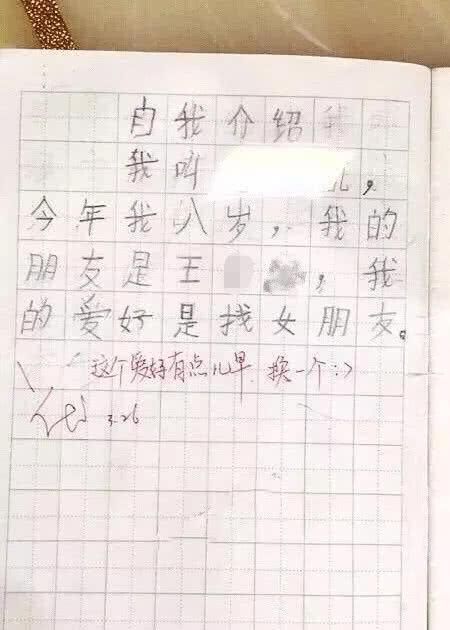 自我介绍
我叫，
今年我八岁，我的
朋友是王，我
的爱好是找女朋友。
这个爱好有点儿早.换一个:>
3.26